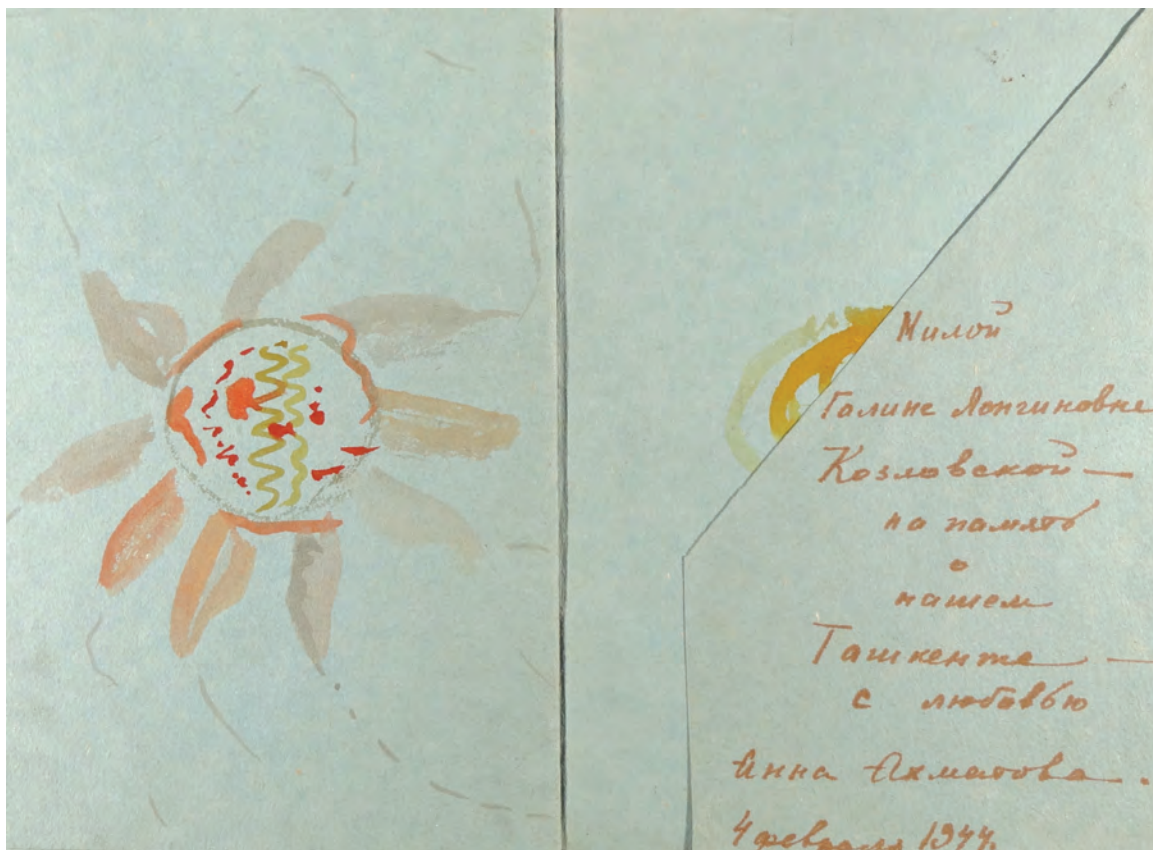 Милой
Галине Лонгиновне
Козловской —
на память
о
нашем
Ташкенте —
с любовью
Анна Ахматова.
4 февраля 1944.